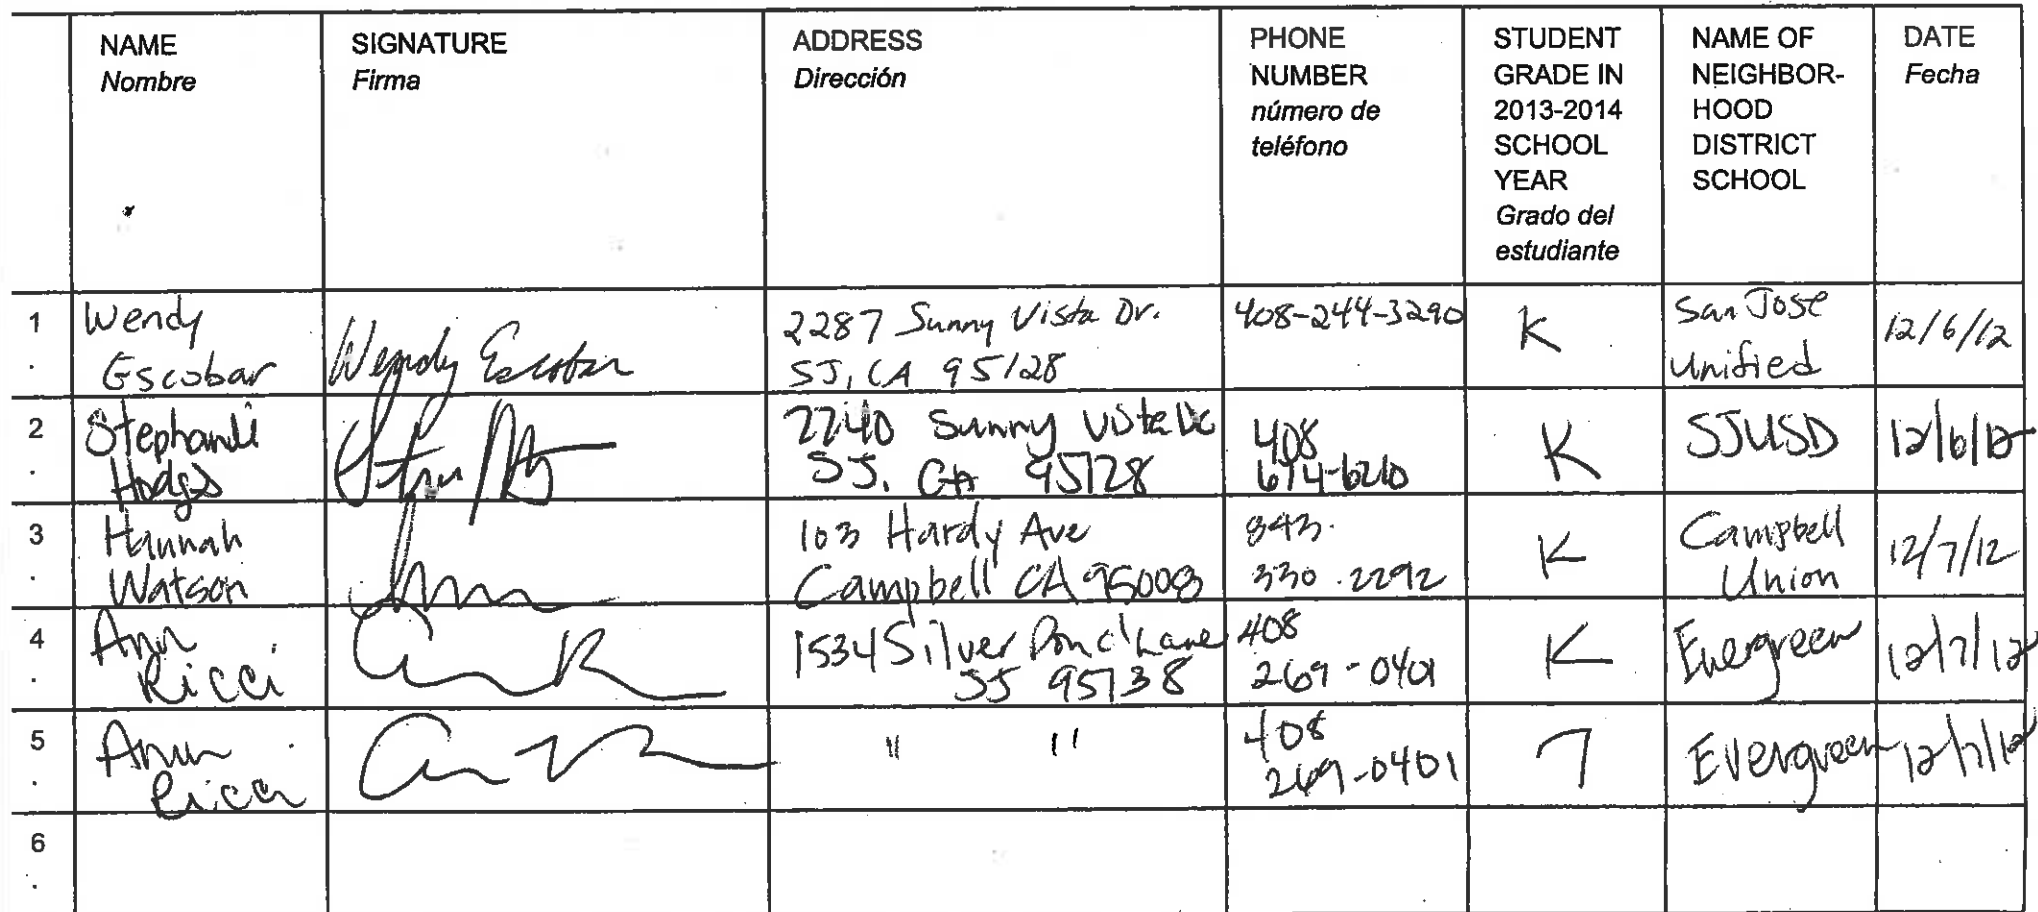 NAME
Nombre
SIGNATURE
Firma
ADDRESS
Dirección
PHONE
NUMBER
número de
teléfono
STUDENT
GRADE IN
2013-2014
SCHOOL
YEAR
Grado del
estudiante
NAME OF
NEIGHBOR-
HOOD
DISTRICT
SCHOOL
DATE
Fecha
1
.
Wendy
Escobar
Wendy Escobar
2287 Sunny Vista Dr.
SJ, CA 95128
408-244-3290
K
San Jose
Unified
12/6/12
2
.
Stephanie
Hodgs
2240 Sunny Vista Dr
SJ. CA 95128
408
674-6210
K
SJUSD
12/6/12
3
.
Hannah
Watson
103 Hardy Ave
Campbell CA 95008
843.
330.2292
K
Campbell
Union
12/7/12
4
.
Ann
Ricci
1534 Silver Pond Lane
SJ 95138
408
269-0401
K
Evergreen
12/7/12
5
.
Ann
Ricci
" "
408
269-0401
7
Evergreen
12/7/12
6
.